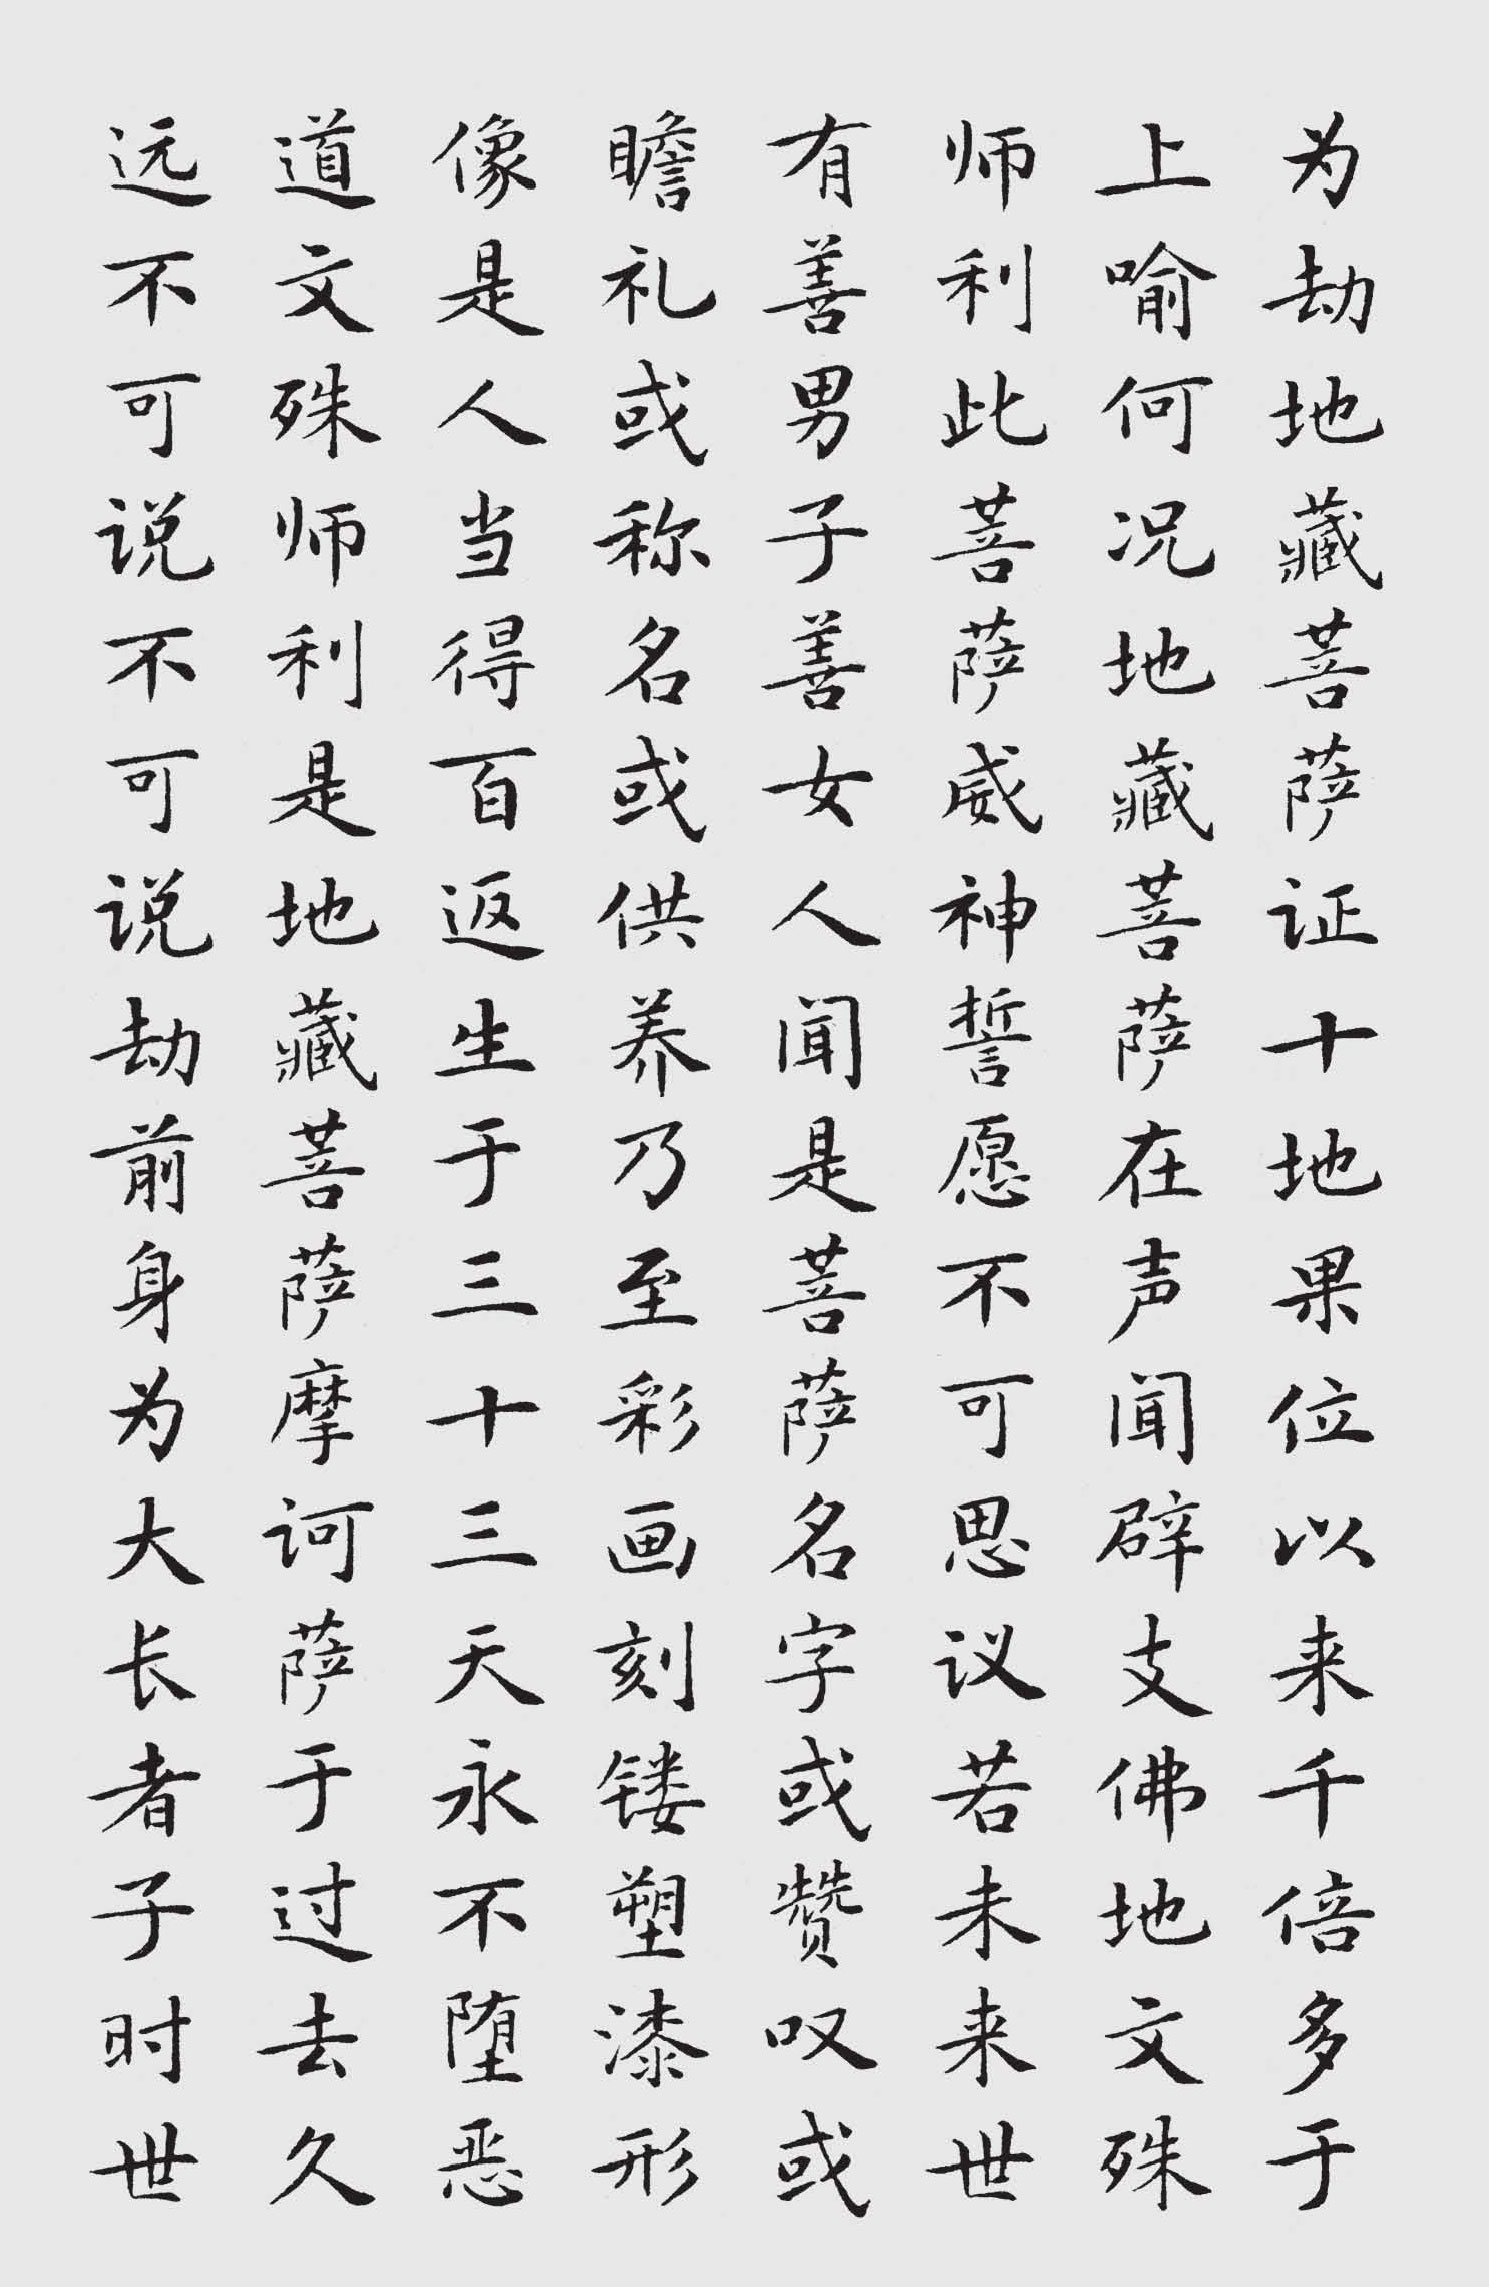 为劫地藏菩萨证十地果位以来千倍多于
上喻何况地藏菩萨在声闻辟支佛地文殊
师利此菩萨威神誓愿不可思议若未来世
有善男子善女人闻是菩萨名字或赞叹或
瞻礼或称名或供养乃至彩画刻镂塑漆形
像是人当得百返生于三十三天永不堕恶
道文殊师利是地藏菩萨摩诃萨于过去久
远不可说不可说劫前身为大长者子时世